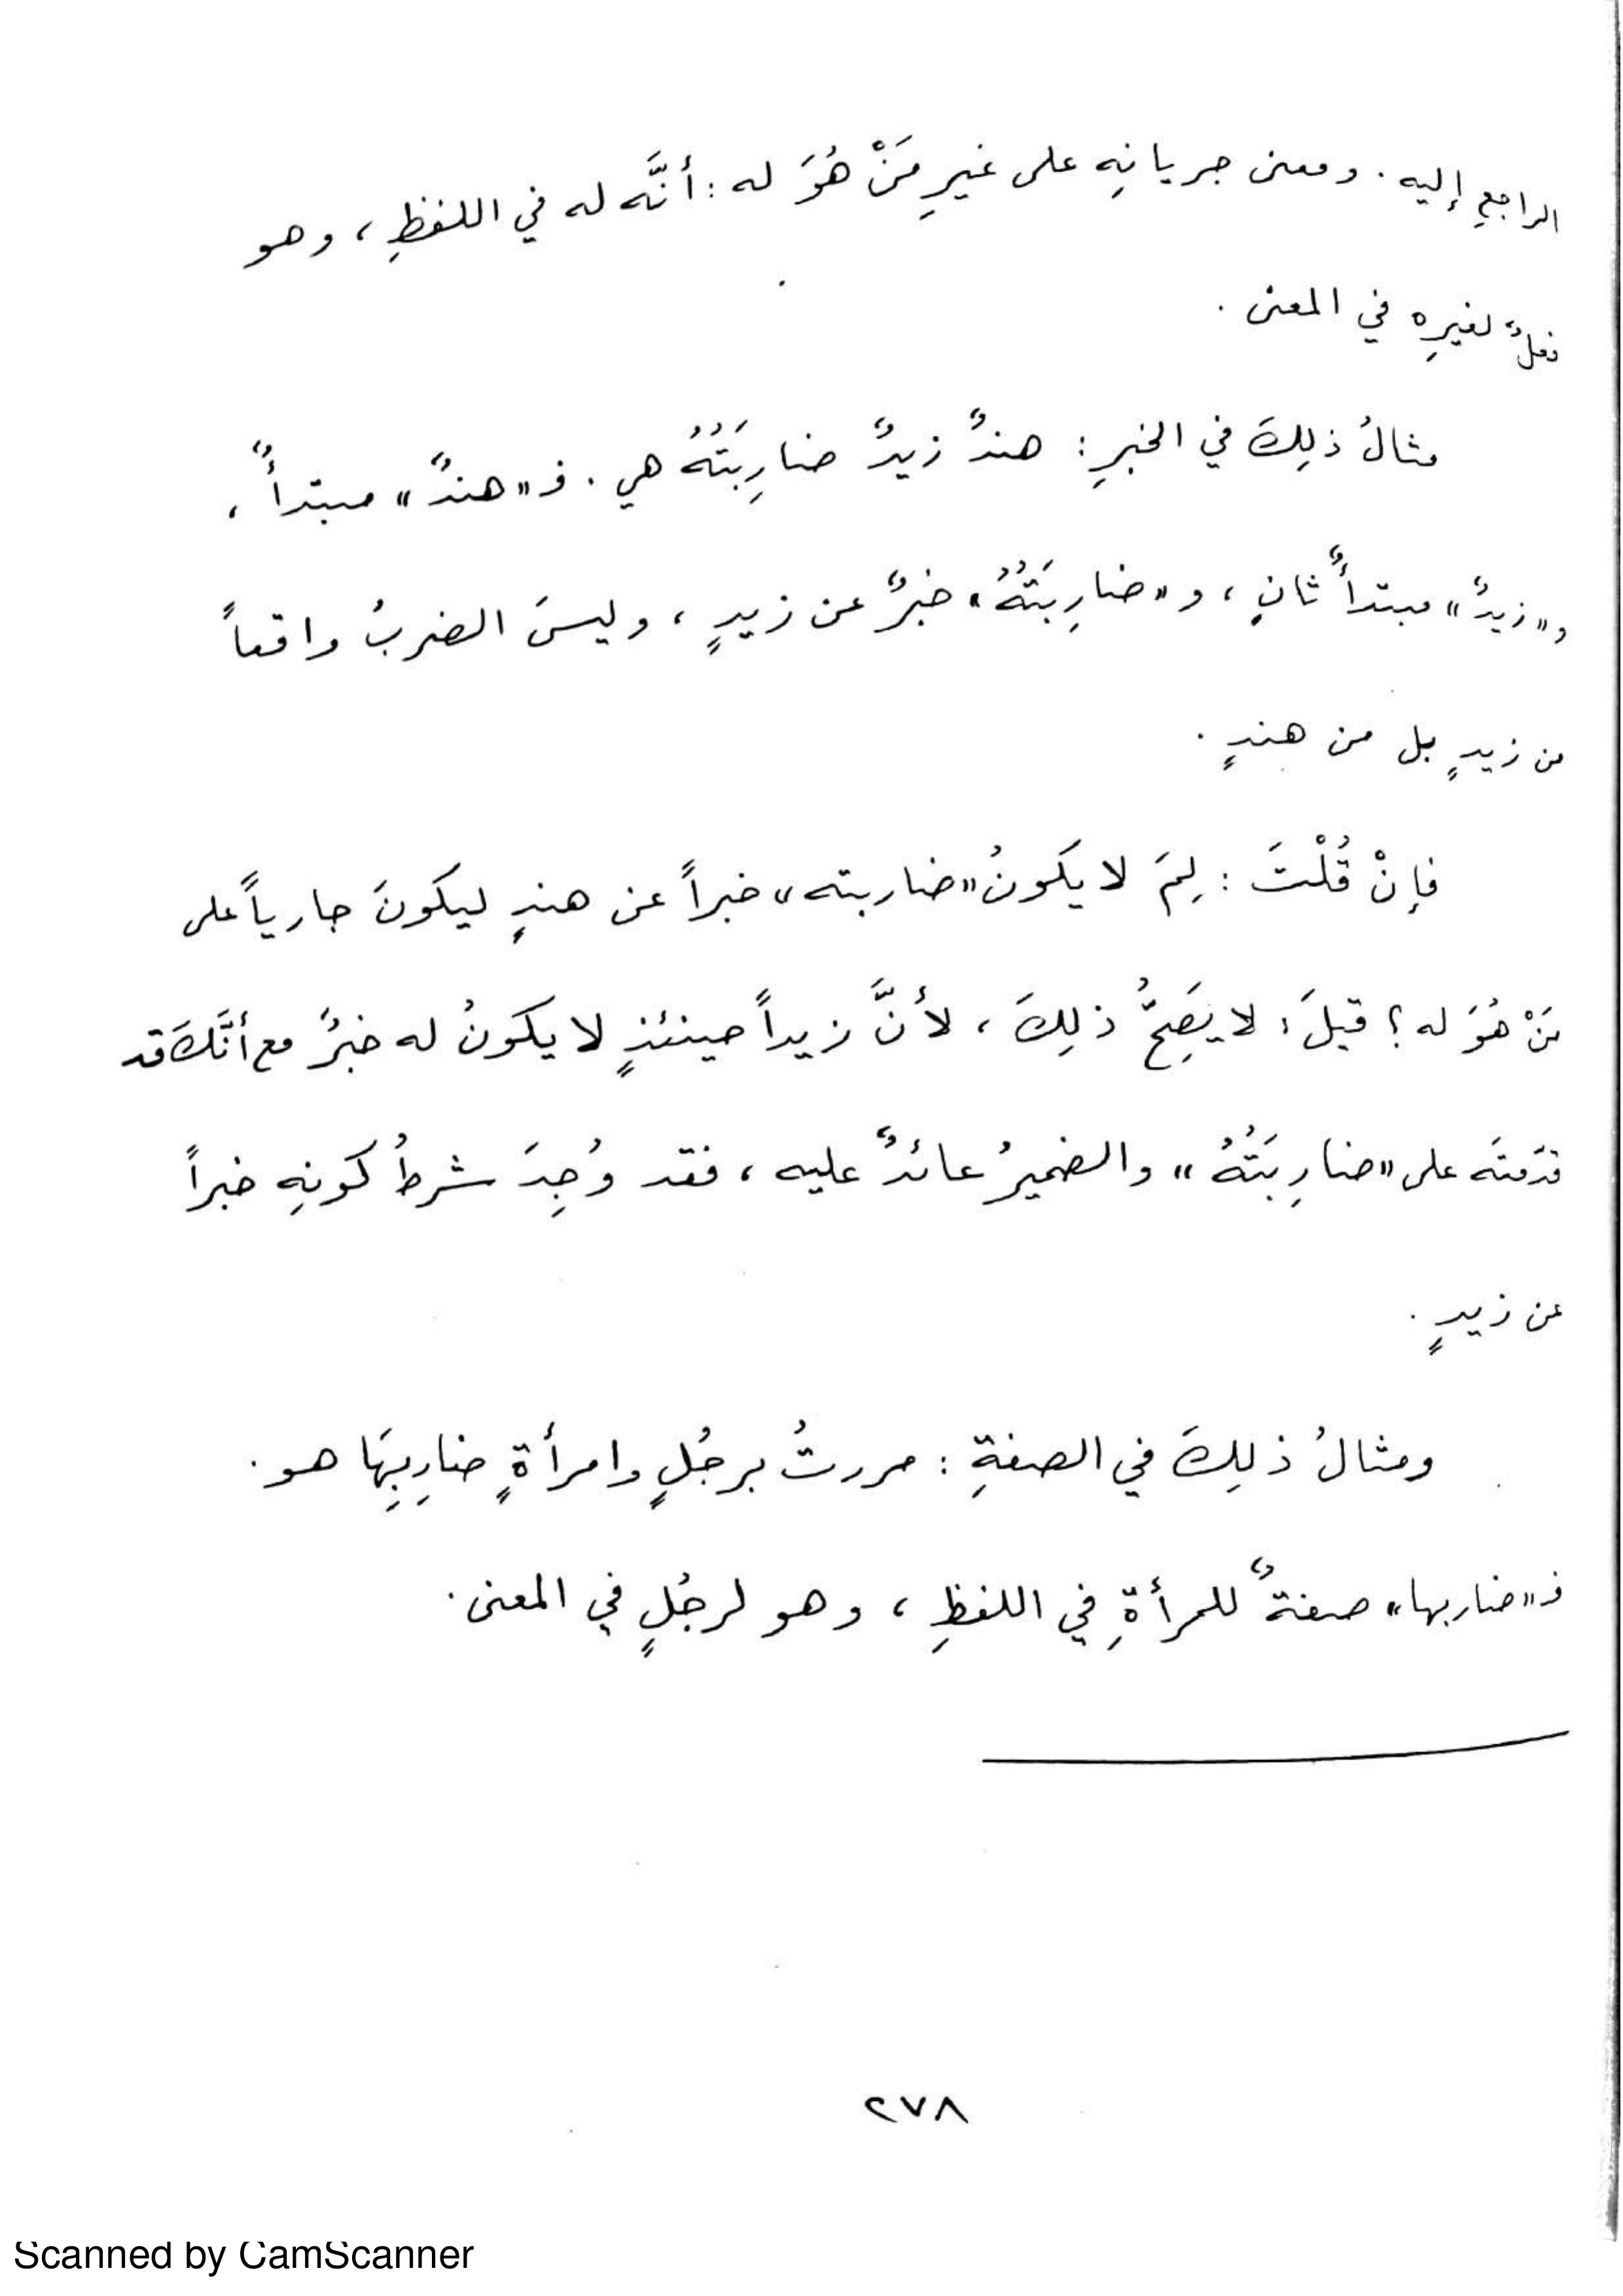 الراجعِ إليه . ومعنى جريانِهِ على غيرِ مَنْ هُوَ له : أنَّه له في اللفظِ ، وهو
فعلٌ لغيرِه في المعنى .
مثالُ ذلِكَ في الخبرِ : هندٌ زيدٌ ضارِبَتُهُ هي . فـ «هندٌ» مبتدأٌ ،
و«زيدٌ» مبتدأٌ ثانٍ ، و«ضارِبَتُهُ» خبرٌ عن زيدٍ ، وليسَ الضربُ واقعاً
من زيدٍ بل من هندٍ .
فإنْ قُلْتَ : لِمَ لا يكونُ «ضاربته» خبراً عن هندٍ ليكونَ جارياً على
مَنْ هُوَ له ؟ قيلَ : لا يَصِحُّ ذلِكَ ، لأنَّ زيداً حينئذٍ لا يكونُ له خبرٌ مع أنَّكَ قد
قدّمتَه على «ضارِبَتُهُ» والضميرُ عائدٌ عليه ، فقد وُجِدَ شرطُ كونِهِ خبراً
عن زيدٍ .
ومثالُ ذلِكَ في الصفةِ : مررتُ برجُلٍ وامرأةٍ ضارِبِهَا هو .
فـ «ضاربها» صفةٌ للمرأةِ في اللفظِ ، وهو لرجُلٍ في المعنى .
٢٧٨
Scanned by CamScanner